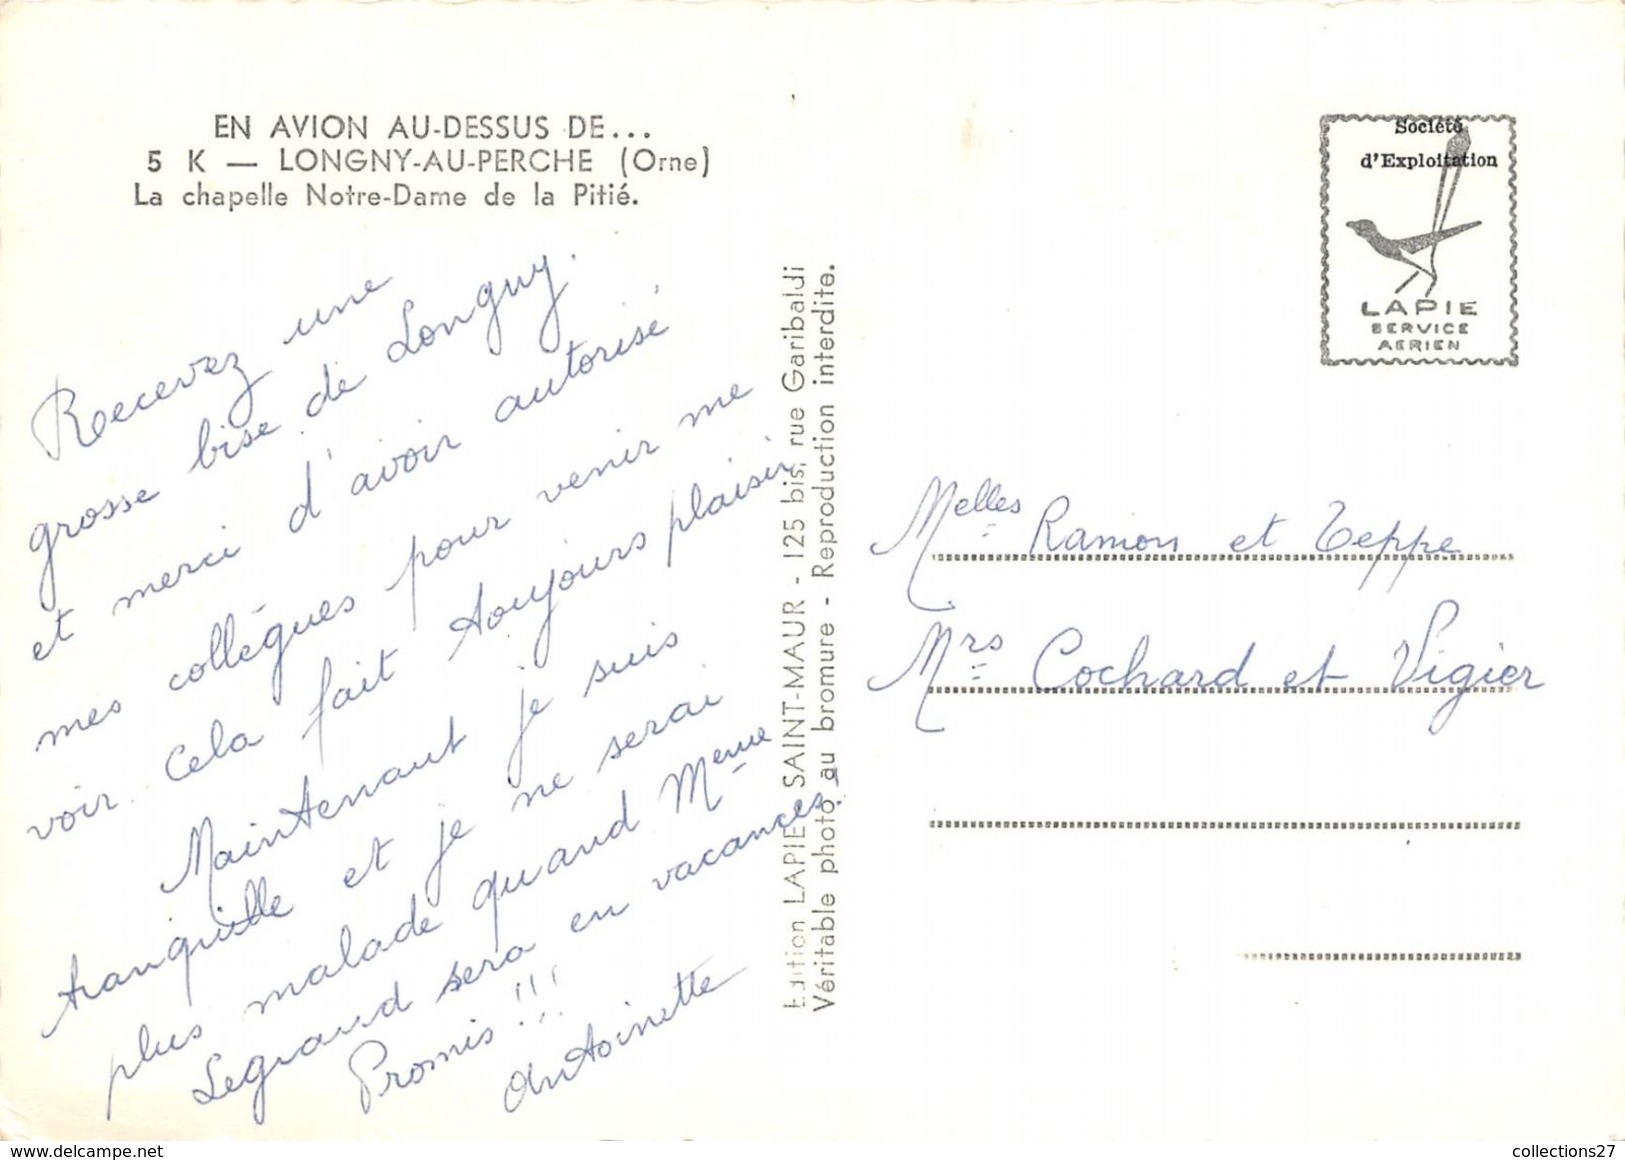 EN AVION AU-DESSUS DE...
5 K — LONGNY-AU-PERCHE (Orne)
La chapelle Notre-Dame de la Pitié.
Recevez une
grosse bise de Longny.
et merci d'avoir autorisé
mes collègues pour venir me
voir. Cela fait toujours plaisir
Maintenant je suis
tranquille et je ne serai
plus malade quand Mme
Legrand sera en vacances.
Promis!!!
Antoinette
Edition LAPIE SAINT-MAUR - 125 bis, rue Garibaldi
Véritable photo au bromure - Reproduction interdite.
Société
d'Exploitation
LAPIE
SERVICE
AERIEN
Melles Ramon et Teppe
Mrs Cochard et Vigier
collections27